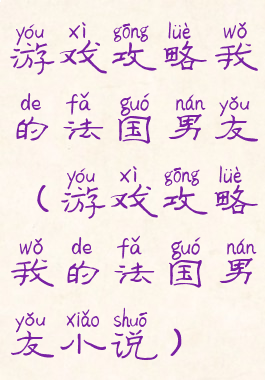 yóu xì gōng lüè wǒ
游戏攻略我
de fǎ guó nán yǒu
的法国男友
yóu xì gōng lüè
（游戏攻略
wǒ de fǎ guó nán
我的法国男
yǒu xiǎo shuō
友小说）